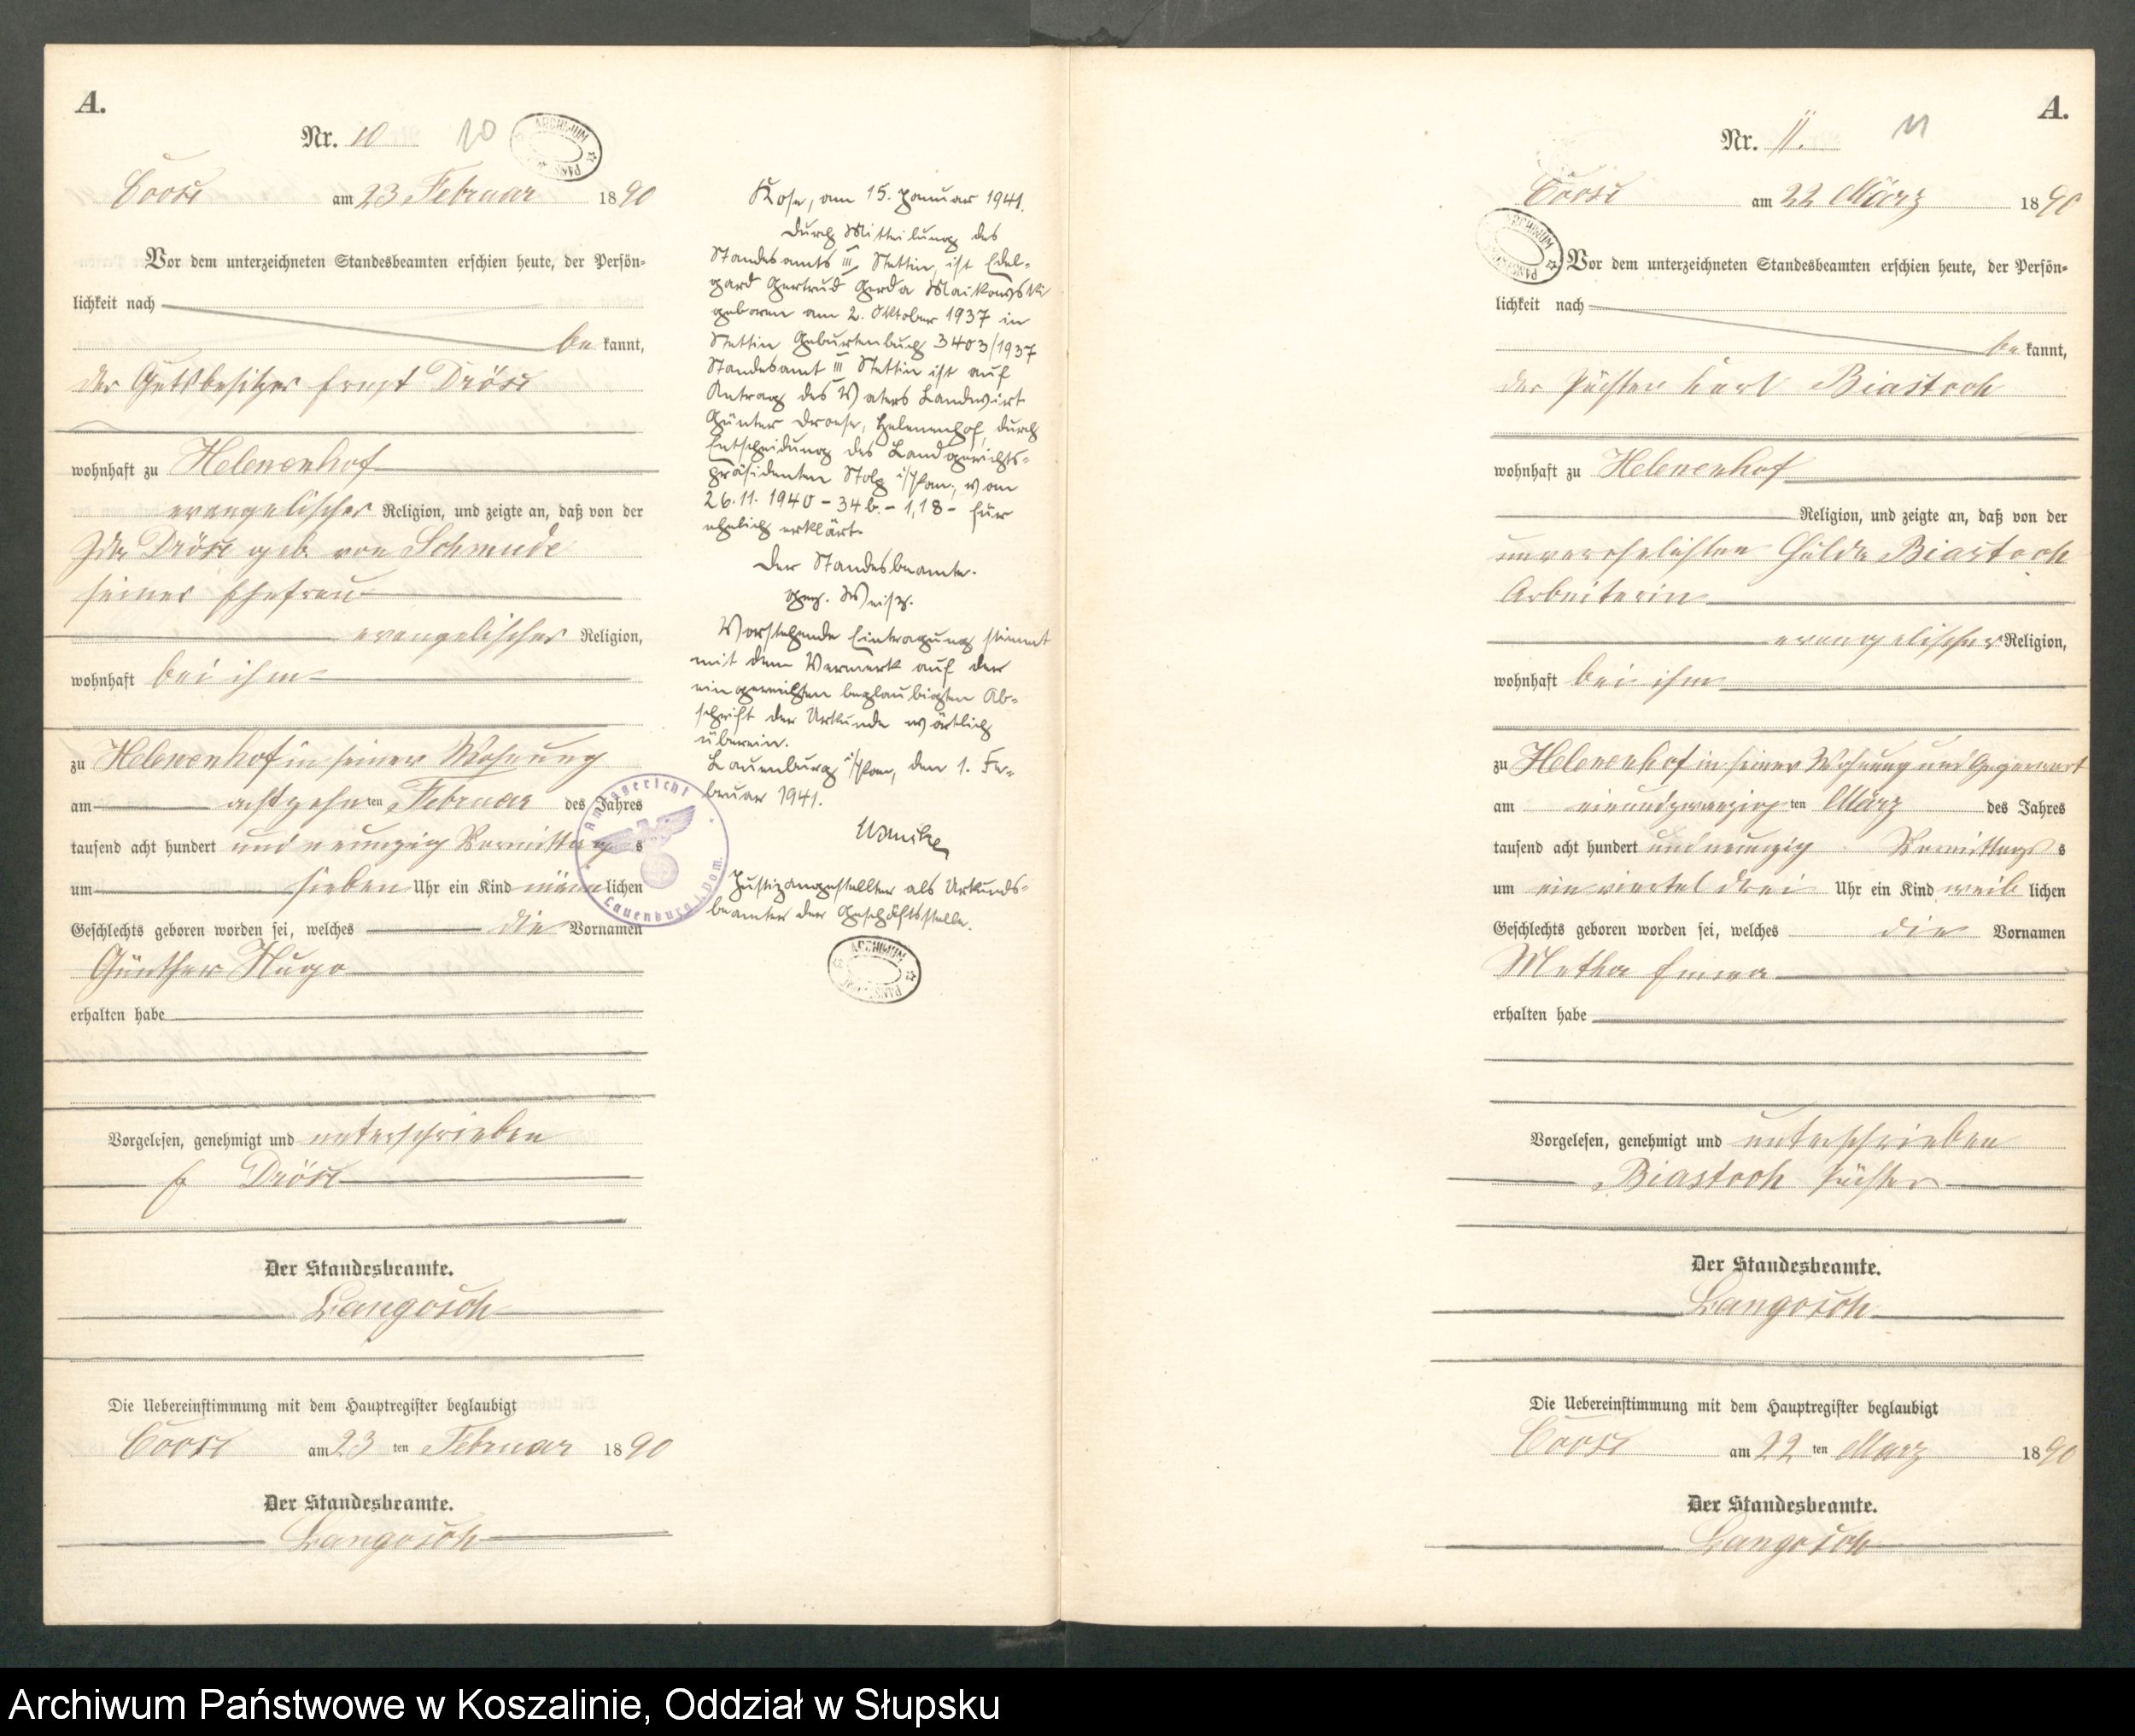 A.
Nr. 10 10
ARCHIWUM
Coose am 23 Februar 1890
Vor dem unterzeichneten Standesbeamten erschien heute, der Persön-
lichkeit nach
be kannt,
der Gutsbesitzer Ernst Dröse
wohnhaft zu Helenenhof
evangelischer Religion, und zeigte an, daß von der
Ida Dröse geb. von Schmude
seiner Ehefrau
evangelischer Religion,
wohnhaft bei ihm
zu Helenenhof in seiner Wohnung
am achtzehnten Februar des Jahres
tausend acht hundert und neunzig Vormittags
um sieben Uhr ein Kind männlichen
Geschlechts geboren worden sei, welches die Vornamen
Günther Hugo
erhalten habe
Vorgelesen, genehmigt und unterschrieben
E Dröse
Der Standesbeamte.
Langosch
Die Uebereinstimmung mit dem Hauptregister beglaubigt
Coose am 23 ten Februar 1890
Der Standesbeamte.
Langosch
Kose, am 15. Januar 1941.
Durch Mitteilung des
Standesamts III Stettin, ist Edel-
gard Gertrud Gerda Maikowski
geboren am 2. Oktober 1937 in
Stettin Geburtenbuch 3403/1937
Standesamt III Stettin ist auf
Antrag des Vaters Landwirt
Günter Droese, Helenenhof, durch
Entscheidung des Landgerichts-
präsidenten Stolp i/Pom., vom
26.11.1940 - 34b. - 1,18 - für
ehelich erklärt.
Der Standesbeamte.
gez. Weiß.
Vorstehende Eintragung stimmt
mit dem Vermerk auf der
eingereichten beglaubigten Ab-
schrift der Urkunde wörtlich
überein.
Lauenburg i/Pom, den 1. Fe-
bruar 1941.
Justizangestellter als Urkunds-
beamter der Geschäftsstelle.
Amtsgericht
Lauenburg i. Pom.
ARCHIWUM
A.
Nr. 11. 11
Coose am 22 März 1890
ARCHIWUM
Vor dem unterzeichneten Standesbeamten erschien heute, der Persön-
lichkeit nach
be kannt,
der Pächter Karl Biastoch
wohnhaft zu Helenenhof
Religion, und zeigte an, daß von der
unverehelichten Hulda Biastoch
Arbeiterin
evangelischer Religion,
wohnhaft bei ihm
zu Helenenhof in seiner Wohnung und Gegenwart
am einundzwanzig ten März des Jahres
tausend acht hundert und neunzig Vormittags s
um ein viertel drei Uhr ein Kind weib lichen
Geschlechts geboren worden sei, welches die Vornamen
Metha Emma
erhalten habe
Vorgelesen, genehmigt und unterschrieben
Biastoch Pächter
Der Standesbeamte.
Langosch
Die Uebereinstimmung mit dem Hauptregister beglaubigt
Coose am 22 ten März 1890
Der Standesbeamte.
Langosch
Archiwum Państwowe w Koszalinie, Oddział w Słupsku